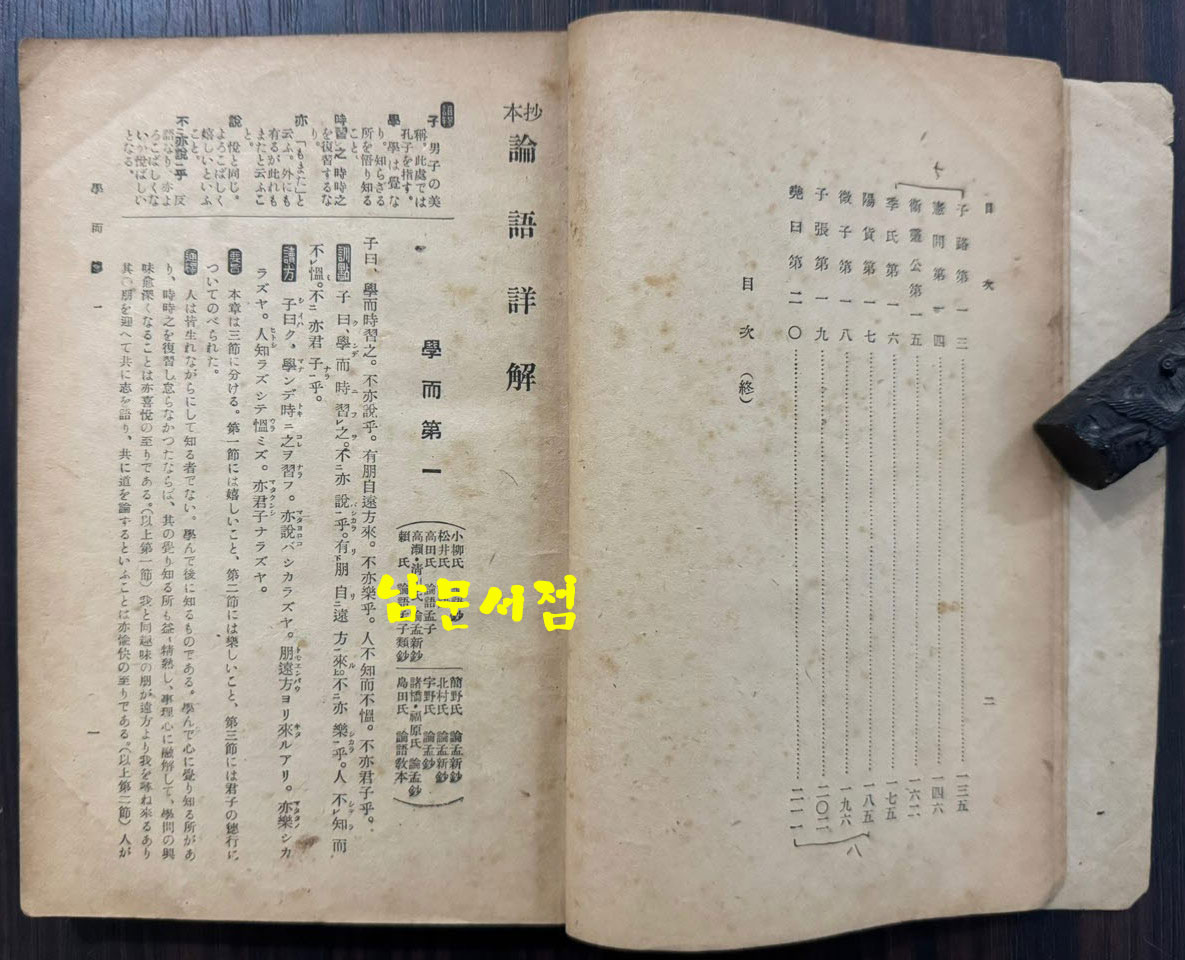 目次
子路第一三 一三五
憲問第一四 一四六
衞靈公第一五 一六二
季氏第一六 一七五
陽貨第一七 一八五
微子第一八 一九六
子張第一九 二〇二
堯曰第二〇 二一一
目次（終）
二
八
抄本
論語詳解
學而第一
小柳氏
松井氏
高田氏 論語孟子
高瀨・淸 氏 論孟新鈔
賴氏 論語孟子類鈔
簡野氏 論孟新鈔
北村氏 論孟新鈔
宇野氏 論孟鈔
諸橋・福原氏 論孟鈔
島田氏 論語敎本
子 男子の美
稱。此處では
孔子を指す。
學 學は覺な
り。知らざる
所を悟り知る
こと。
時習之 時時之
を復習するな
り。
亦 「もまた」と
云ふ。外にも
有るが此れも
またと云ふこ
と。
說 悅と同じ。
よろこばしく
嬉しいといふ
こと。
不亦說乎 反
語なり。亦よ
ろこばしくな
いか悅ばしい
となる。
子曰、學而時習之。不亦說乎。有朋自遠方來。不亦樂乎。人不知而不慍。不亦君子乎。
訓點 子曰、學而時習之。不亦說乎。有朋自遠方來。不亦樂乎。人不知而
不慍。不亦君子乎。
讀方 子曰ク、學ンデ時ニ之ヲ習フ。亦說バシカラズヤ。朋遠方ヨリ來ルアリ。亦樂シカ
ラズヤ。人知ラズシテ慍ミズ。亦君子ナラズヤ。
要旨 本章は三節に分ける。第一節には嬉しいこと、第二節には樂しいこと、第三節には君子の德行に
ついてのべられた。
通釋 人は皆生れながらにして知る者でない。學んで後に知るものである。學んで心に覺り知る所があ
り、時時之を復習し怠らなかつたならば、其の覺り知る所も益々精熟し、事理心に融解して、學問の興
味愈深くなることは亦喜悅の至りである。（以上第一節）我と同趣味の朋が遠方より我を尋ね來るあり
其の朋を迎へて共に志を語り、共に道を論ずるといふことは亦愉快の至りである。（以上第二節）人が
學而第一
一
남문서점